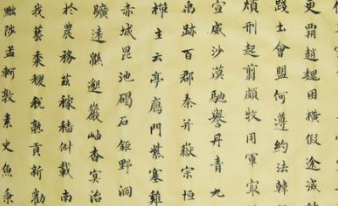 更霸趙魏困橫假途滅
踐土會盟何遵約法韓
煩刑起翦頗牧用軍最
宣威沙漠馳譽丹青九
禹跡百郡秦并嶽宗恒
禪主云亭鴈門紫塞雞
赤城昆池碣石鉅野洞
曠遠緜邈巖岫杳冥治
於農務茲稼穡俶載南
我藝黍稷稅熟貢新勸
黜陟孟軻敦素史魚秉